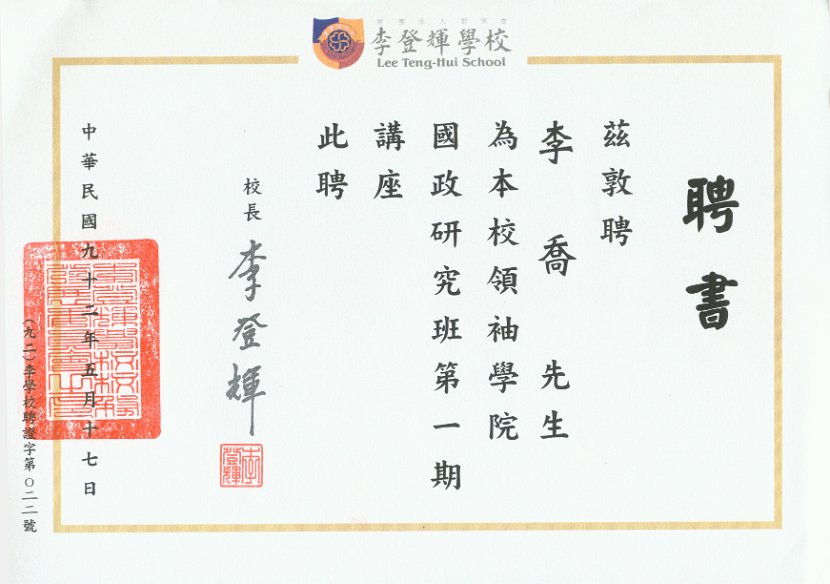 財團法人群策會
李登輝學校
Lee Teng-Hui School
聘書
茲敦聘
李喬先生
為本校領袖學院
國政研究班第一期
講座
此聘
校長 李登輝
李登輝
中華民國九十二年五月十七日
(九二)李學校聘證字第０二二號